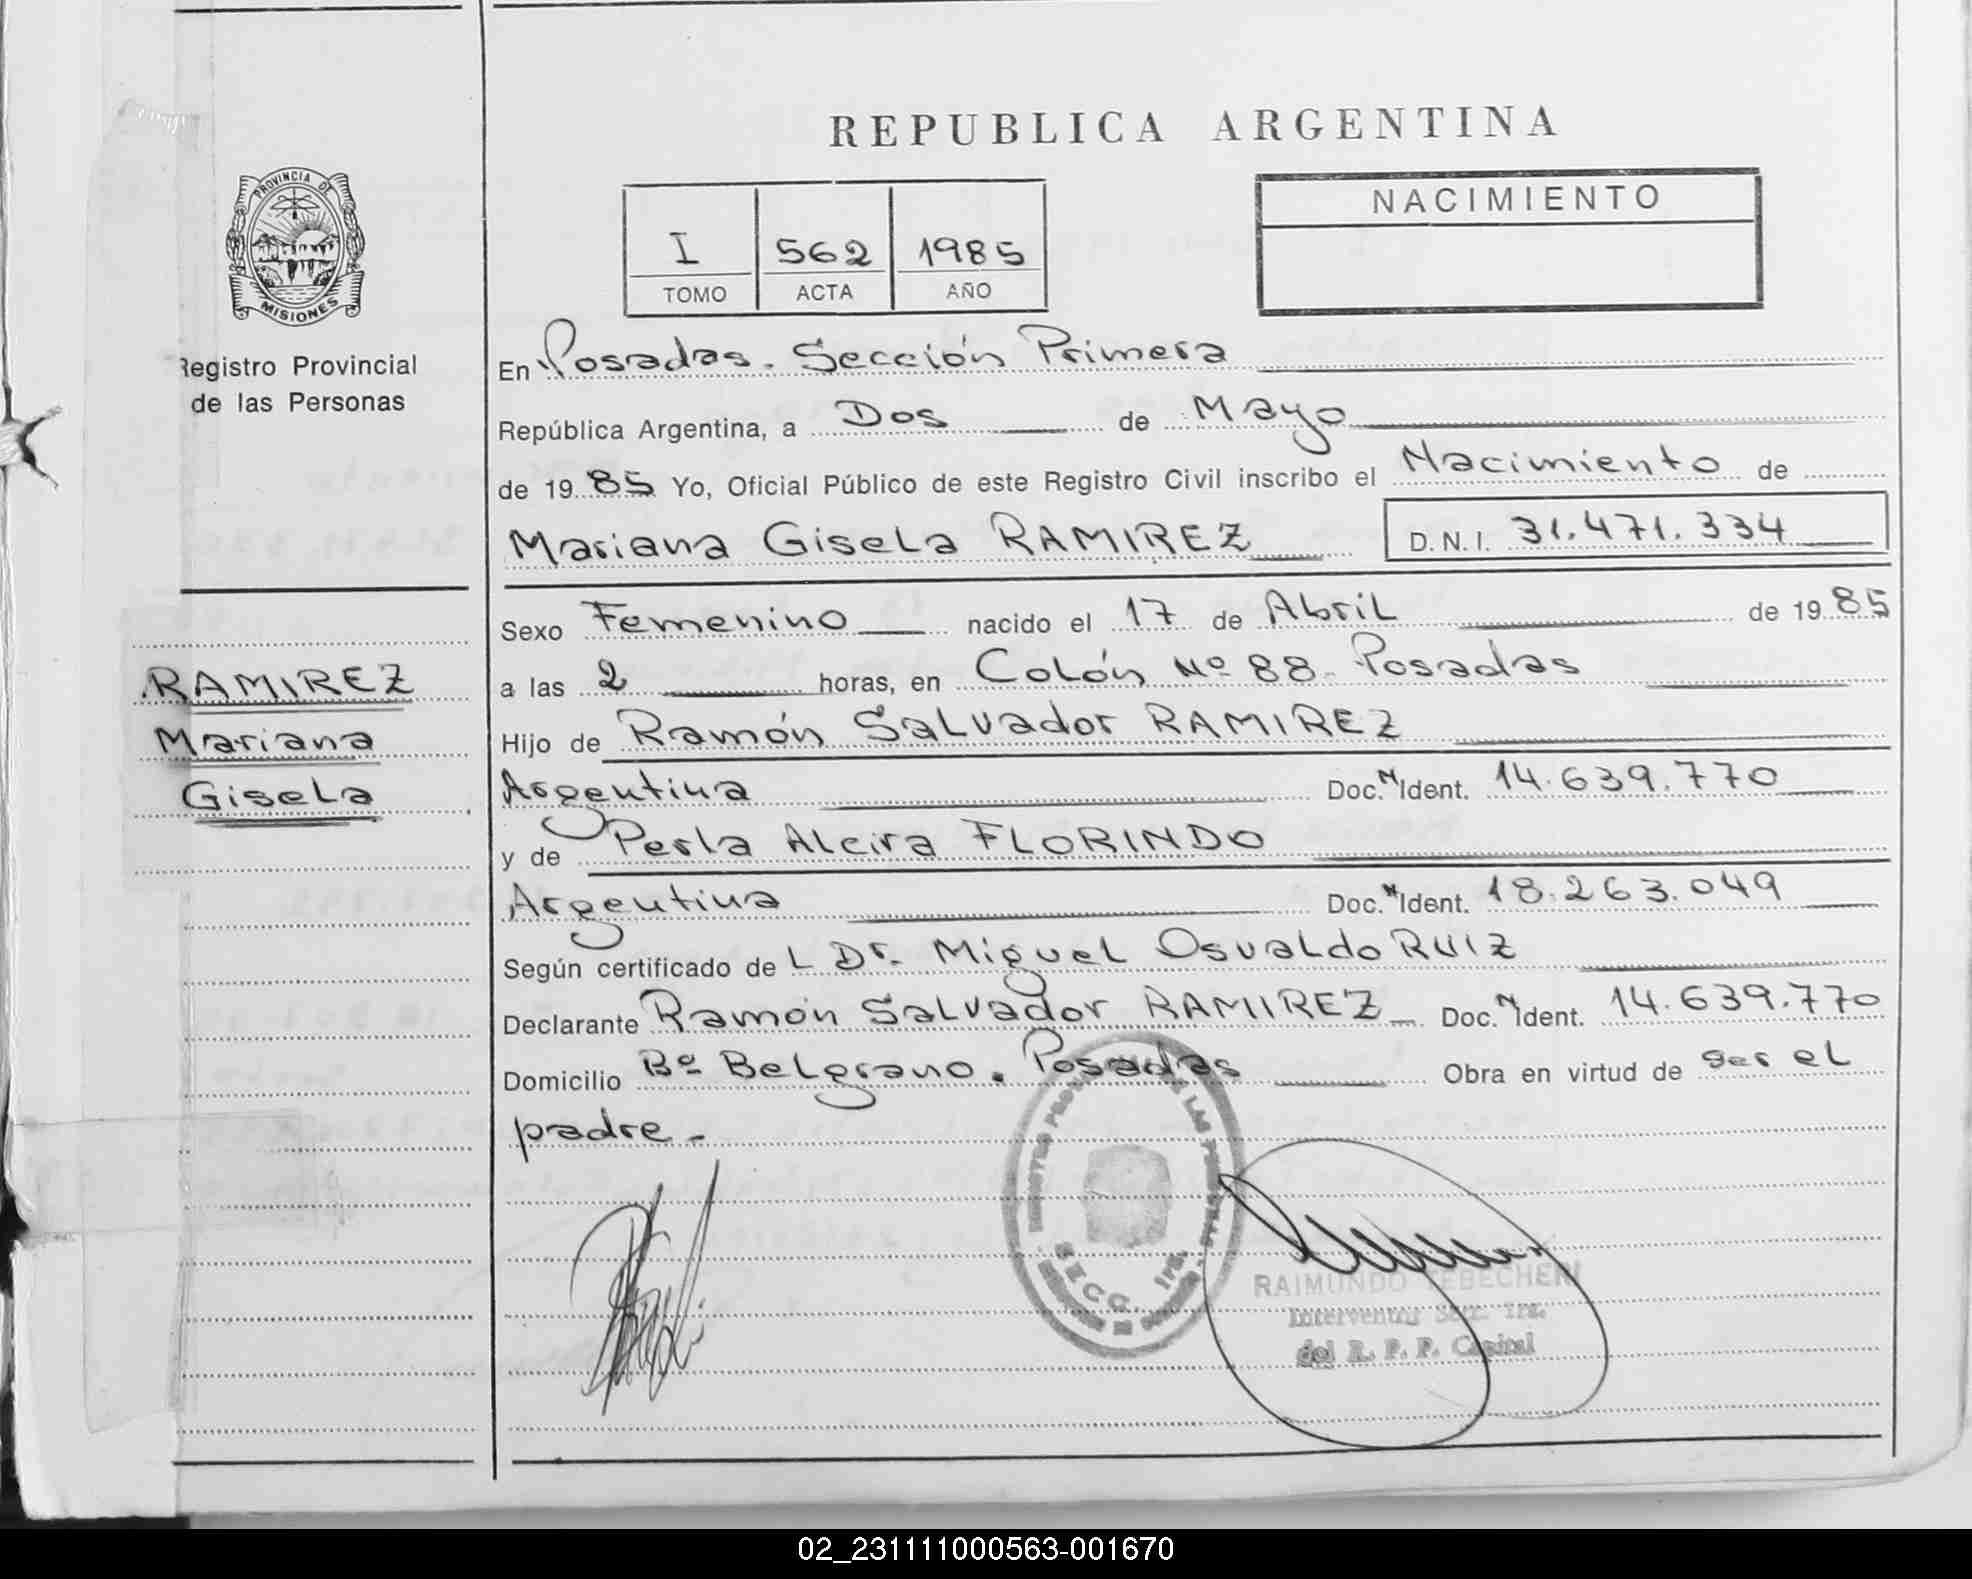 REPUBLICA ARGENTINA
PROVINCIA DE
MISIONES
Registro Provincial
de las Personas
I 562 1985
TOMO ACTA AÑO
NACIMIENTO
En Posadas. Sección Primera
República Argentina, a Dos de Mayo
de 19 85 Yo, Oficial Público de este Registro Civil inscribo el Nacimiento de
Mariana Gisela RAMIREZ D.N.I. 31.471.334
Sexo Femenino nacido el 17 de Abril de 19 85
a las 2 horas, en Colón Nº 88. Posadas
Hijo de Ramón Salvador RAMIREZ
Argentina Doc. N Ident. 14.639.770
y de Perla Alcira FLORINDO
Argentina Doc. N Ident. 18.263.049
Según certificado de L Dr. Miguel Osvaldo RUIZ
Declarante Ramón Salvador RAMIREZ Doc. N Ident. 14.639.770
Domicilio Bº Belgrano. Posadas Obra en virtud de ser el
padre.-
RAMIREZ
Mariana
Gisela
SECC. 1ra.
RAIMUNDO
Interventor Secc. 1ra.
del R. P. P. Capital
02_231111000563-001670